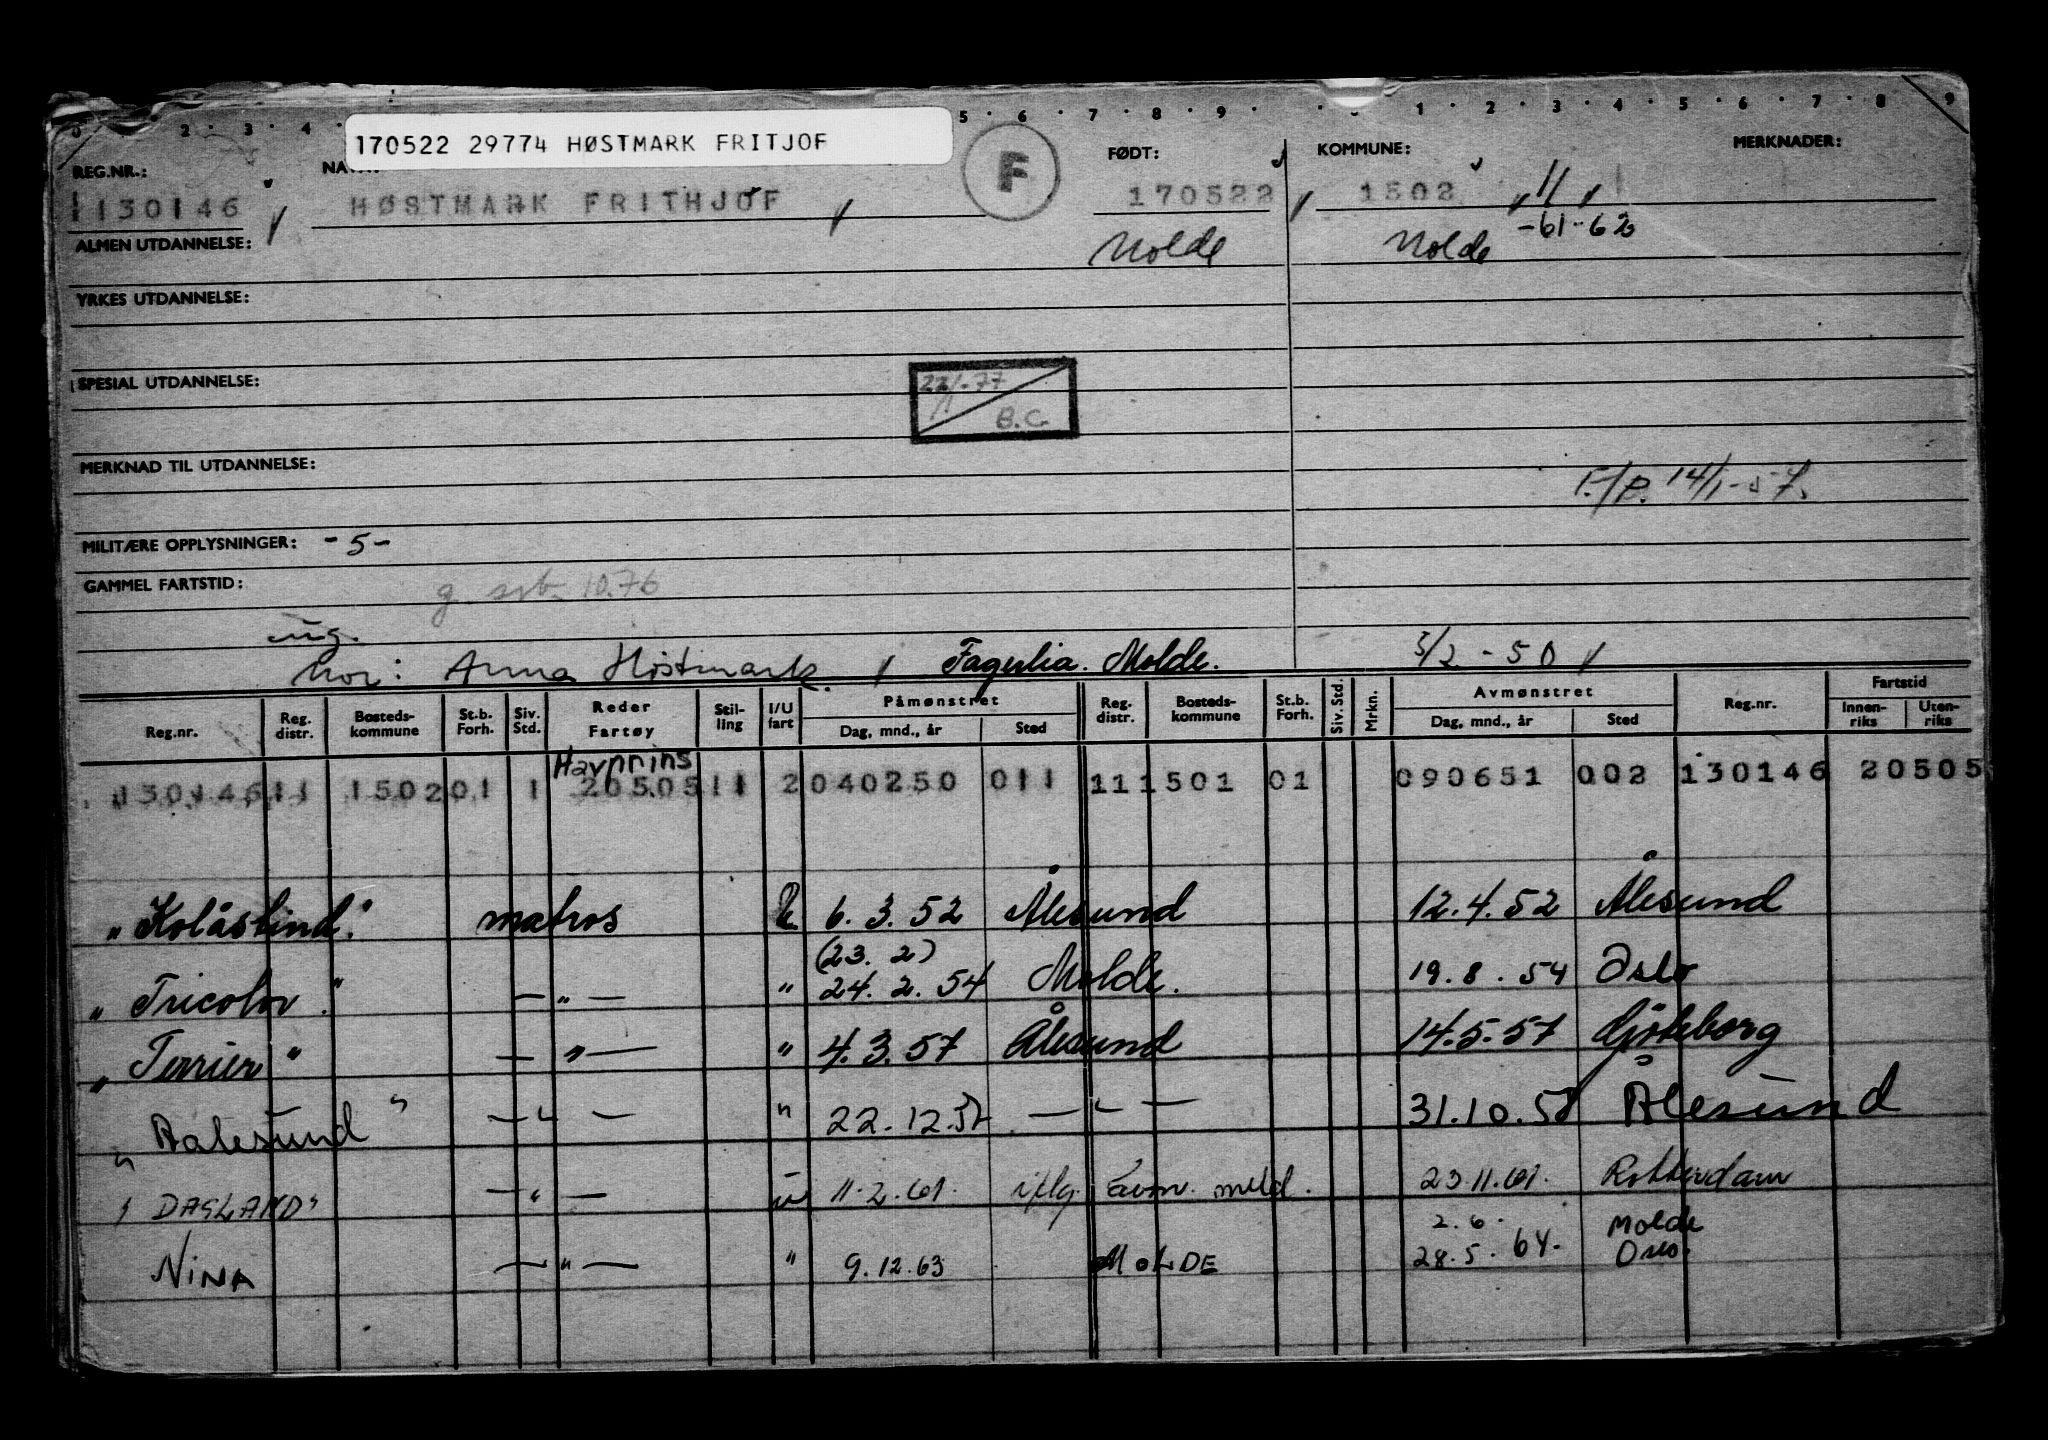 0 2 3 4 5 6 7 8 9 1 2 3 4 5 6 7 8 9
170522 29774 HØSTMARK FRITJOF
F
REG.NR.: FØDT: KOMMUNE: MERKNADER:
1130146 HØSTMARK FRITHJOF 170522 1502 11
ALMEN UTDANNELSE: Molde Molde -61-62
YRKES UTDANNELSE:
SPESIAL UTDANNELSE:
22/1-77
B.C.
MERKNAD TIL UTDANNELSE:
F./P. 14/1-57.
MILITÆRE OPPLYSNINGER: -5-
GAMMEL FARTSTID: 10.76
ug.
Mor: Anna Høstmark. Fagerlia. Molde. 3/2-50
Reg.nr. Reg. distr. Bosteds-kommune St.b. Forh. Siv. Std. Reder Fartøy Stil-ling I/U fart Påmønstret Dag, mnd., år Sted Reg. distr. Bosteds-kommune St.b. Forh. Siv. Std. Mrkn. Avmønstret Dag, mnd., år Sted Reg.nr. Fartstid Innen-riks Uten-riks
Havprins
130146 11 1502 01 1 20505 11 2 040250 011 11 1501 01 090651 002 130146 20505
"Kolåstind." matros 6.3.52 Ålesund 12.4.52 Ålesund
(23. 2)
"Tricolor." — " — " 24.2.54 Molde. 19.8.54 Oslo
"Terrier" — " — " 4.3.57 Ålesund 14.5.57 Gjøteborg
"Aalesund" — " — " 22.12.57 — " — 31.10.58 Ålesund
"DAGLAND" — " — u 11.2.61. iflg. avm. meld. 23.11.61. Rotterdam
2.6. Molde
NINA — " — " 9.12.63 MOLDE 28.5.64. Oslo.